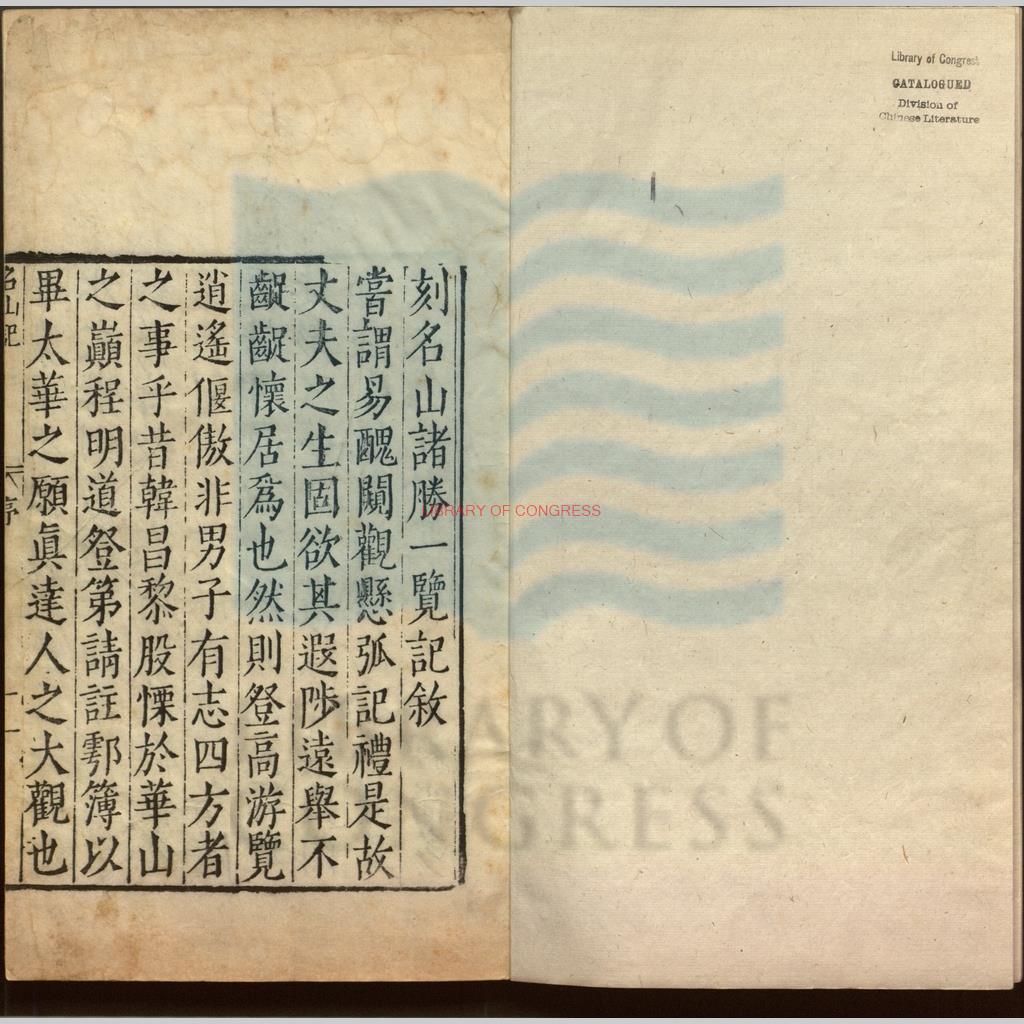 刻名山諸勝一覽記敘
嘗謂易醜闚觀懸弧記禮是故
丈夫之生固欲其遐陟遠舉不
齪齪懷居為也然則登高游覽
逍遙偃傲非男子有志四方者
之事乎昔韓昌黎股慄於華山
之巔程明道登第請註鄠簿以
畢太華之願眞達人之大觀也
名山記
序
一
Library of Congress
CATALOGUED
Division of
Chinese Literature
LIBRARY OF CONGRESS
LIBRARY OF
CONGRESS